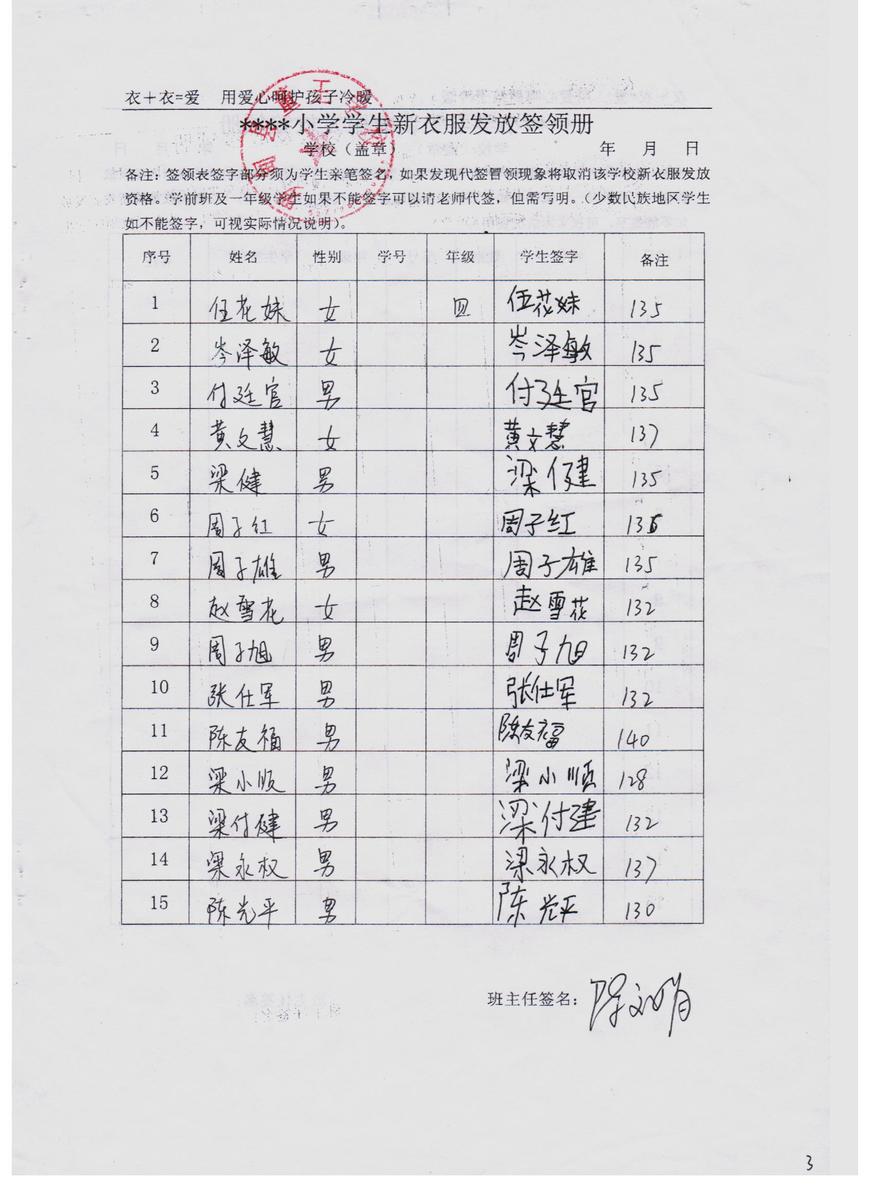 衣＋衣=爱　用爱心呵护孩子冷暖
****小学学生新衣服发放签领册
学校（盖章）　年　月　日
备注：签领表签字部分须为学生亲笔签名，如果发现代签冒领现象将取消该学校新衣服发放
资格。学前班及一年级学生如果不能签字可以请老师代签，但需写明。（少数民族地区学生
如不能签字，可视实际情况说明）。
序号 姓名 性别 学号 年级 学生签字 备注
1 伍花妹 女 四 伍花妹 135
2 岑泽敏 女 岑泽敏 135
3 付廷官 男 付廷官 135
4 黄文慧 女 黄文慧 137
5 梁健 男 梁健 135
6 周子红 女 周子红
7 周子雄 男 周子雄 135
8 赵雪花 女 赵雪花 132
9 周子旭 男 周子旭 132
10 张仕军 男 张仕军 132
11 陈友福 男 陈友福 140
12 梁小顺 男 梁小顺 128
13 梁付健 男 梁付建 132
14 梁永权 男 梁永权 137
15 陈光平 男 陈光平 130
班主任签名：
3